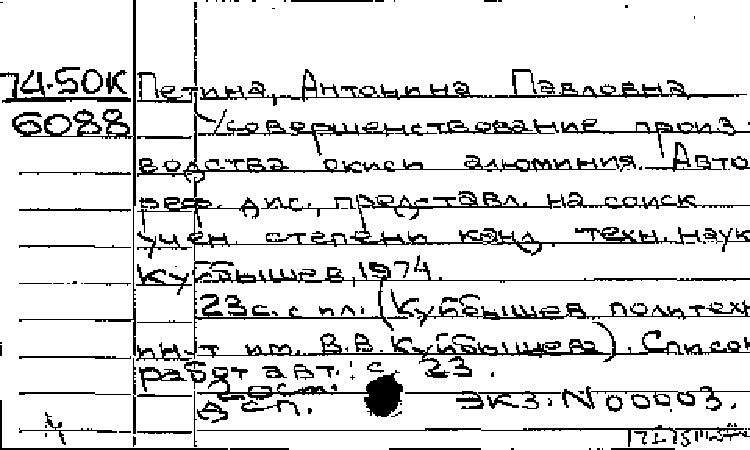 74-50К Петина, Антонина Павловна
6088 Совершенствование произ-
водства окиси алюминия. Авто-
реф. дис., представл. на соиск
учен. степени канд. техн. наук
Куйбышев, 1974.
23с. с ил. (Куйбышев. политехн
инт им. В.В. Куйбышева). Список
работ авт.: с. 23.
ДСП.
Экз. N 00003.